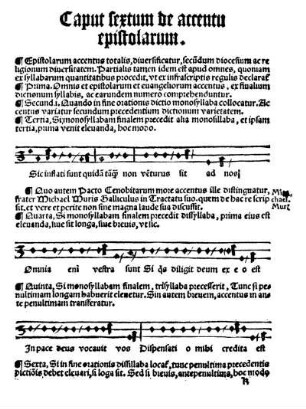 Caput sextum de accentu
epistolarum.
¶ Epistolarum accentus totalis, diuersificatur, secūdum diocesium ac re
ligionum diuersitatem. Partialis tamen idem est apud omnes, quoniam
ex syllabarum quantitatibus procedit, vt ex infrascriptis regulis declarat̄
¶ Prima. Omnis et epistolarum et euangeliorum accentus, ex finalium
dictionum syllabis, ac earundem numero comprehenduntur.
¶ Secunda. Quando in fine orationis dictio monosyllaba collocatur. Ac
centus variatur secundum precedentium dictionum varietatem.
¶ Tertia, Si monosyllabam finalem precedit alia monosyllaba, et ipsam
tertia, prima venit eleuanda, hoc modo.
Sic inflati sunt quidā tāq̄ non vēturus sit ad nos
¶ Quo autem Pacto Cenobitarum more accentus ille distinguatur,
frater Michael Muris Galliculus in Tractatu suo, quem de hac re scrip
sit, et vere et perite non sine magna laude sua discussit.
Mi
chael.
Muri
¶ Quarta, Si monosyllabam finalem precedit dissyllaba, prima eius est
eleuanda, siue sit longa, siue breuis, vt hic.
Omnia eni vestra sunt Si q̄s diligit deum ex eo est
¶ Quinta, Si monosyllabam finalem, trisyllaba precesserit, Tunc si pe=
nultimam longam habuerit eleuetur. Sin autem breuem, accentus in an
te penultimam transferatur.
In pace deus vocauit vos Dispensati o mihi credita est
¶ Sexta, Si in fine orationis dissillaba locat̄, tunc penultima precedētis
dictiōis debet eleuari, si lōga sit. Sed si breuis, antepenultima, hoc modo